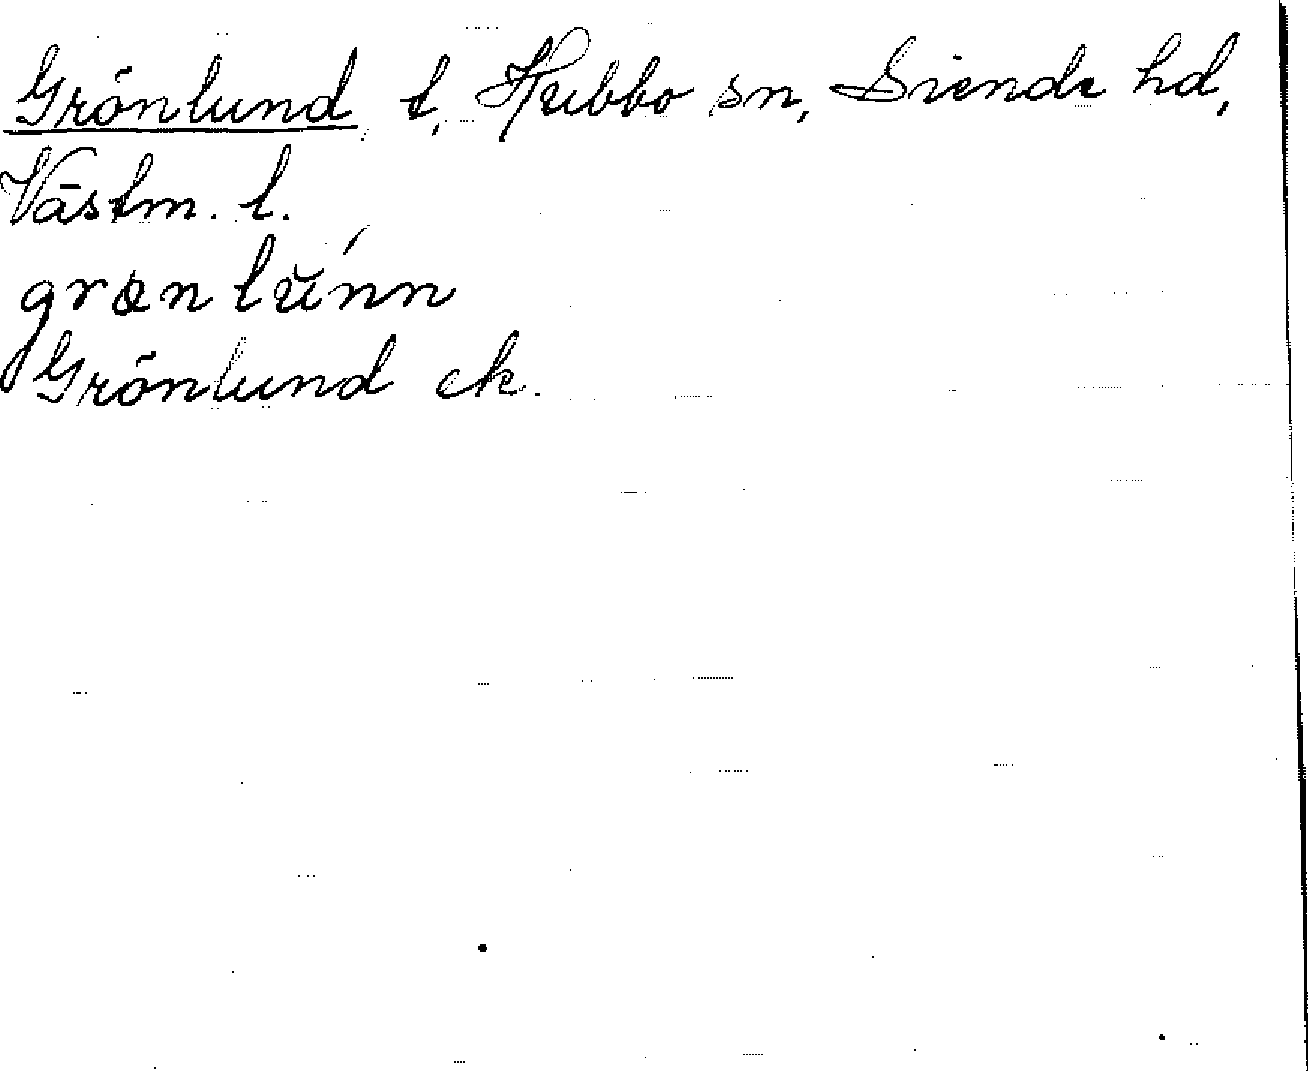 Grönlund t, Hubbo sn, Siende hd,
Västm. l.
grœnlŭ́nn
Grönlund ek.